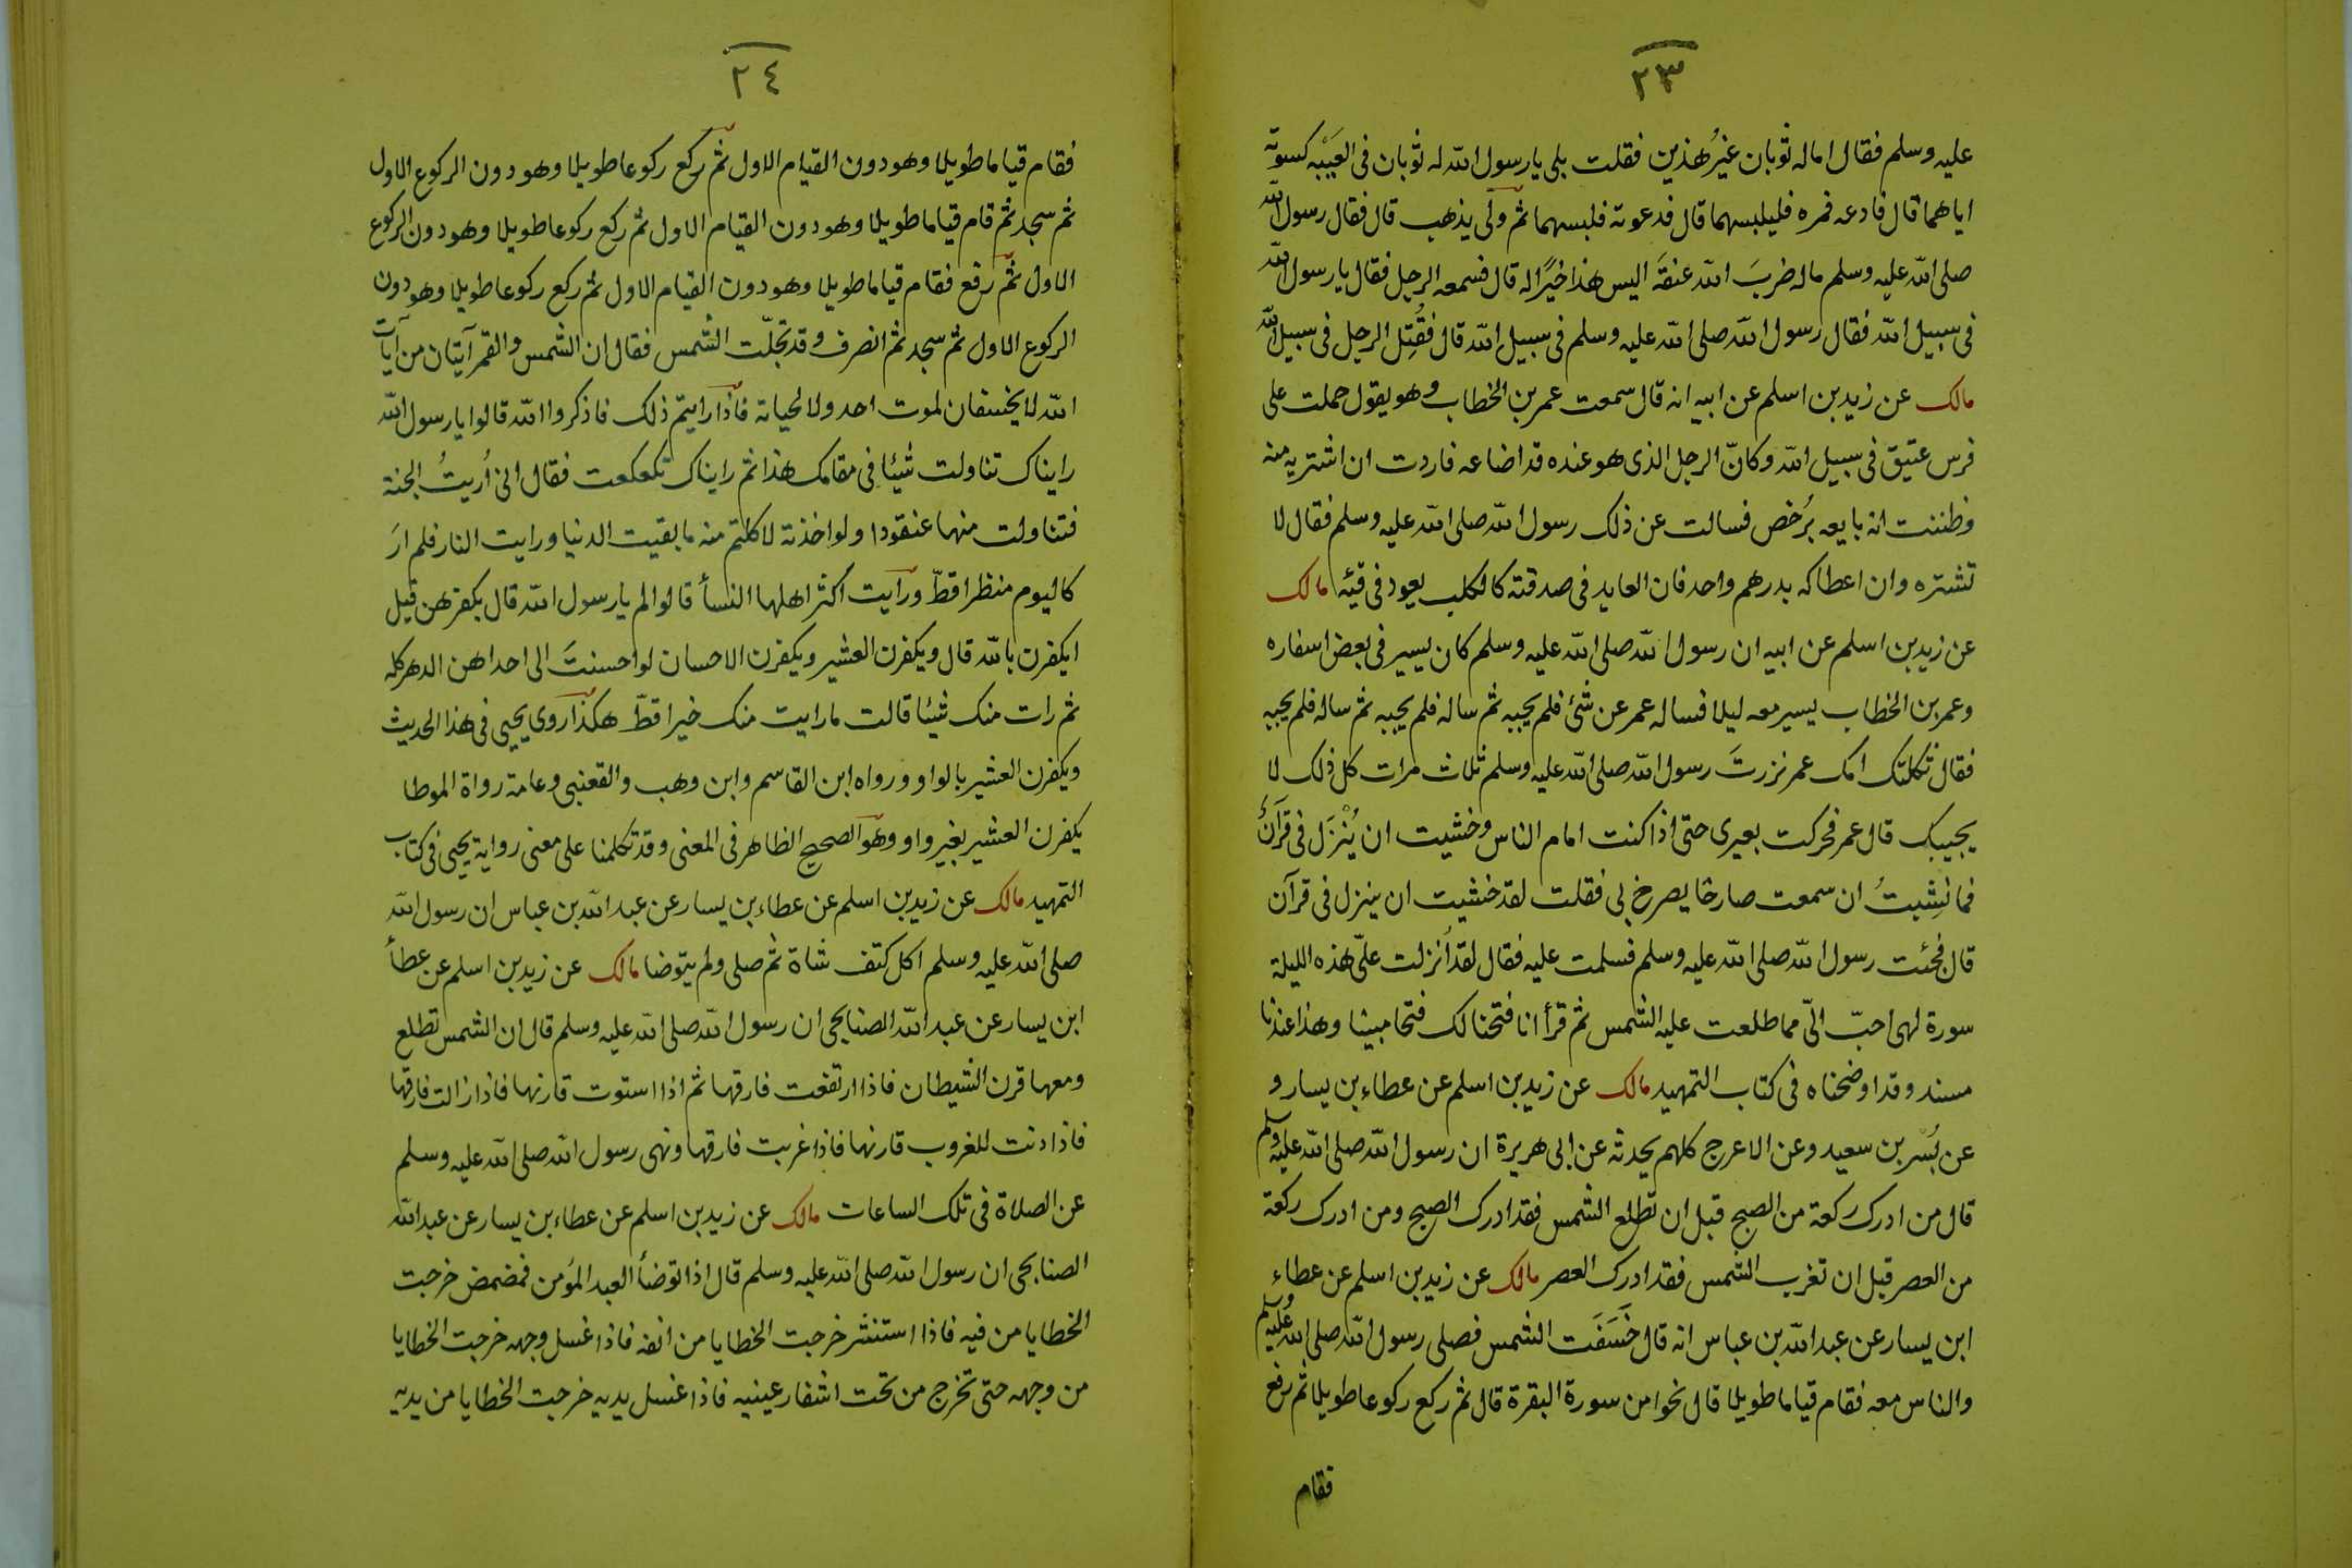 ٢٣
عليه وسلم فقال اما له ثوبان غيرُ هذين فقلت بلى يا رسول الله له ثوبان في العَيْبَه كسوته
اياهما قال فادعه فمره فليلبسهما قال فدعوته فلبسهما ثم ولّى يذهب قال فقال رسول الله
صلى الله عليه وسلم ماله ضربَ الله عنقَه اليس هذا خيرًا له قال فسمعه الرجل فقال يا رسول الله
في سبيل الله فقال رسول الله صلى الله عليه وسلم في سبيل الله قال فقُتِل الرجل في سبيل الله
مالك عن زيد بن اسلم عن ابيه انه قال سمعت عمر بن الخطاب وهو يقول حملت على
فرس عتيق في سبيل الله وكانّ الرجل الذى هو عنده قد اضاعه فاردت ان اشتريه منه
وظننت انه بايعه برُخص فسالت عن ذلك رسول الله صلى الله عليه وسلم فقال لا
تشتره وان اعطاكه بدرهم واحد فان العايد في صدقته كالكلب يعود في قيئه مالك
عن زيد بن اسلم عن ابيه ان رسول الله صلى الله عليه وسلم كان يسير في بعض اسفاره
وعمر بن الخطاب يسير معه ليلا فساله عمر عن شئ فلم يجبه ثم ساله فلم يجبه ثم ساله فلم يجبه
فقال ثكلتك امك عمر نزرتَ رسول الله صلى الله عليه وسلم ثلاث مرات كل ذلك لا
يجيبك قال عمر فحركت بعيرى حتى اذا كنت امام الناس وخشيت ان يُنْزَل في قرآنٌ
فما نشِبتُ ان سمعت صارخا يصرخ بى فقلت لقد خشيت ان ينزل في قرآن
قال فجئت رسول الله صلى الله عليه وسلم فسلمت عليه فقال لقد اُنزلت علىّ هذه الليلة
سورة لهى احبّ الىّ مما طلعت عليه الشمس ثم قرأ انا فتحنا لك فتحا مبينا وهذا عندنا
مسند وقد اوضحناه في كتاب التمهيد مالك عن زيد بن اسلم عن عطاء بن يسار و
عن بُسْر بن سعيد وعن الاعرج كلهم يحدثه عن ابى هريرة ان رسول الله صلى الله عليه وسلم
قال من ادرك ركعة من الصبح قبل ان تطلع الشمس فقد ادرك الصبح ومن ادرك ركعة
من العصر قبل ان تغرب الشمس فقد ادرك العصر مالك عن زيد بن اسلم عن عطاء
ابن يسار عن عبد الله بن عباس انه قال خَسَفَت الشمس فصلى رسول الله صلى الله عليه وسلم
والناس معه فقام قياما طويلا قال نحوا من سورة البقرة قال ثم ركع ركوعا طويلا ثم رفع
فقام
٢٤
فقام قياما طويلا وهو دون القيام الاول ثم ركع ركوعا طويلا وهو دون الركوع الاول
ثم سجد ثم قام قياما طويلا وهو دون القيام الاول ثم ركع ركوعا طويلا وهو دون الركوع
الاول ثم رفع فقام قياما طويلا وهو دون القيام الاول ثم ركع ركوعا طويلا وهو دون
الركوع الاول ثم سجد ثم انصرف وقد تجلّت الشمس فقال ان الشمس والقمر آيتان من آيات
الله لا يخسفان لموت احد ولا لحياته فاذا رايتم ذلك فاذكروا الله قالوا يا رسول الله
رايناك تناولت شيئا في مقامك هذا ثم رايناك تكعكعت فقال انى اُريتُ الجنة
فتناولت منها عنقودا ولو اخذته لاكلتم منه ما بقيت الدنيا ورايت النار فلم ارَ
كاليوم منظرا قطّ ورايت اكثر اهلها النسأ قالوا لم يا رسول الله قال بكفرهن قيل
ايكفرن بالله قال ويكفرن العشير ويكفرن الاحسان لو احسنتَ الى احداهن الدهر كله
ثم رات منك شيئا قالت ما رايت منك خيرا قطّ هكذا روى يحيى في هذا الحديث
ويكفرن العشير بالواو ورواه ابن القاسم وابن وهب والقعنبى وعامة رواة الموطا
يكفرن العشير بغير واو وهو الصحيح الظاهر في المعنى وقد تكلمنا على معنى رواية يحيى في كتاب
التمهيد مالك عن زيد بن اسلم عن عطاء بن يسار عن عبد الله بن عباس ان رسول الله
صلى الله عليه وسلم اكل كتف شاة ثم صلى ولم يتوضا مالك عن زيد بن اسلم عن عطأ
ابن يسار عن عبد الله الصنابحى ان رسول الله صلى الله عليه وسلم قال ان الشمس تطلع
ومعها قرن الشيطان فاذا ارتفعت فارقها ثم اذا استوت قارنها فاذا زالت فارقها
فاذا دنت للغروب قارنها فاذا غربت فارقها ونهى رسول الله صلى الله عليه وسلم
عن الصلاة في تلك الساعات مالك عن زيد بن اسلم عن عطاء بن يسار عن عبد الله
الصنابحى ان رسول الله صلى الله عليه وسلم قال اذا توضأ العبد المؤمن فمضمض خرجت
الخطايا من فيه فاذا استنثر خرجت الخطايا من انفه فاذا غسل وجهه خرجت الخطايا
من وجهه حتى تخرج من تحت اشفار عينيه فاذا غسل يديه خرجت الخطايا من يديه